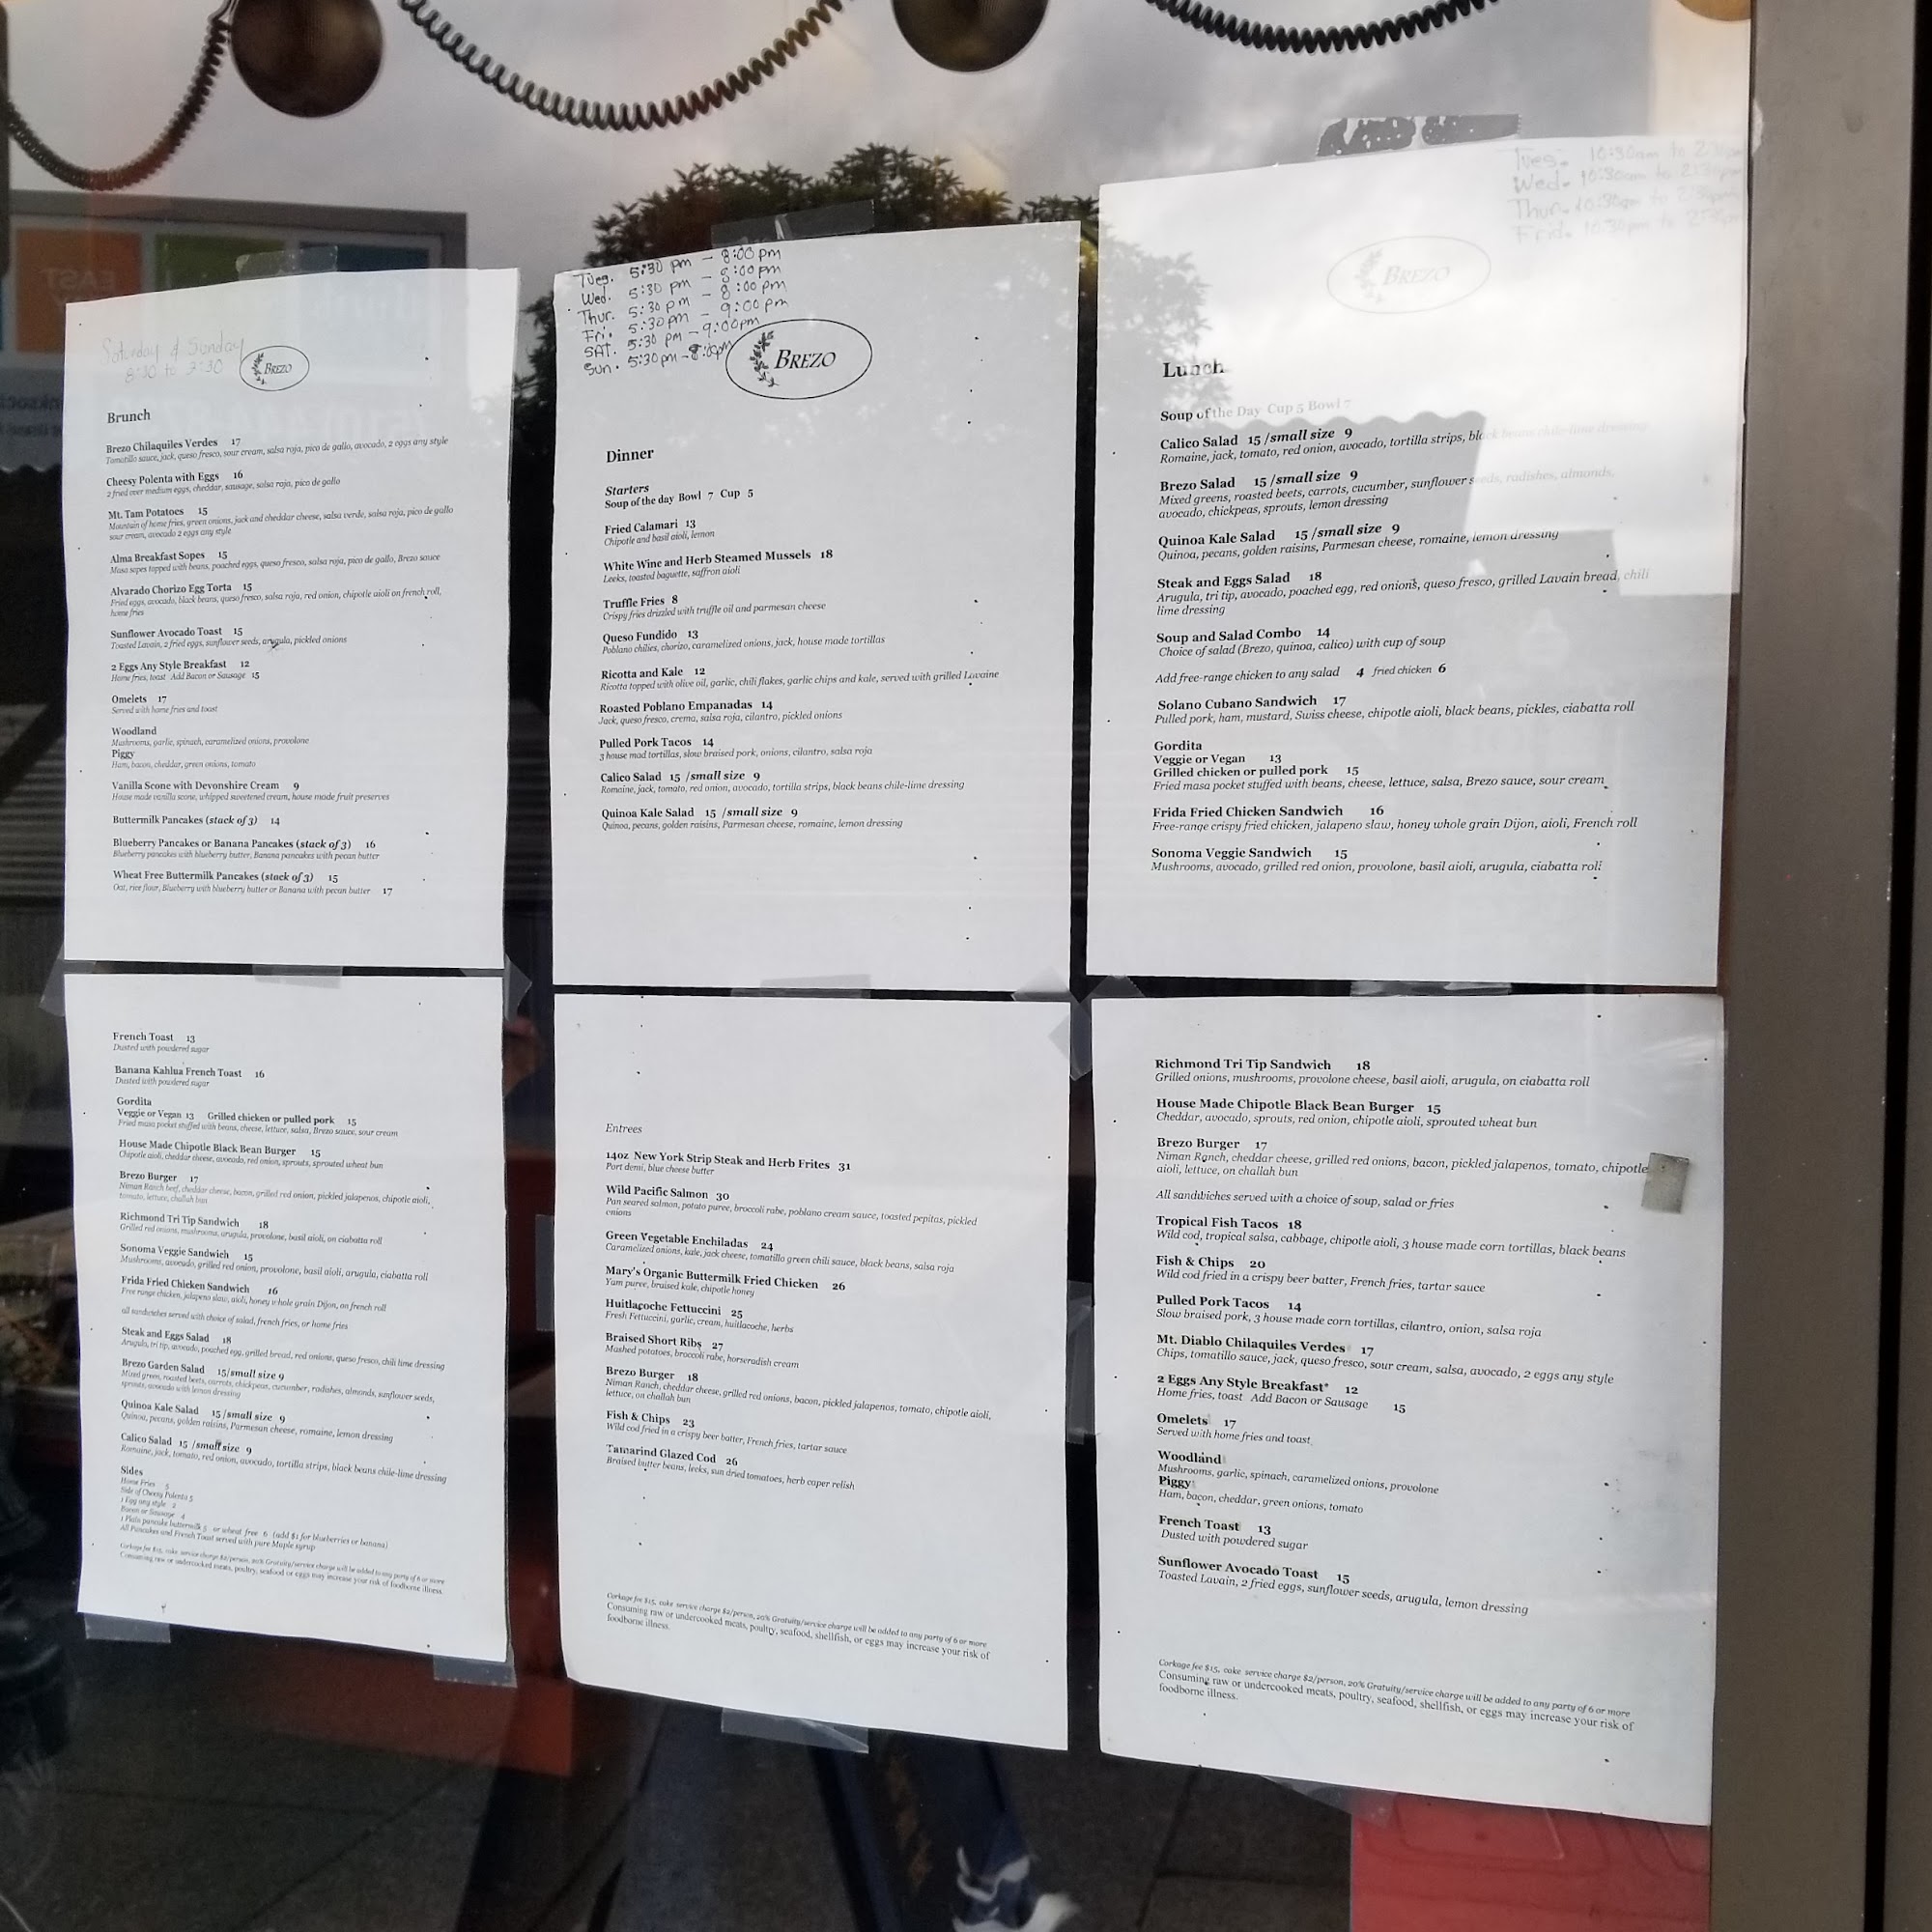 Saturday & Sunday
8:30 to 3:30
BREZO
Brunch
Brezo Chilaquiles Verdes 17
Tomatillo sauce, jack, queso fresco, sour cream, salsa roja, pico de gallo, avocado, 2 eggs any style
Cheesy Polenta with Eggs 16
2 fried over medium eggs, cheddar, sausage, salsa roja, pico de gallo
Mt. Tam Potatoes 15
Mountain of home fries, green onions, jack and cheddar cheese, salsa verde, salsa roja, pico de gallo
sour cream, avocado 2 eggs any style
Alma Breakfast Sopes 15
Masa sopes topped with beans, poached eggs, queso fresco, salsa roja, pico de gallo, Brezo sauce
Alvarado Chorizo Egg Torta 15
Fried eggs, avocado, black beans, queso fresco, salsa roja, red onion, chipotle aioli on french roll,
home fries
Sunflower Avocado Toast 15
Toasted Lavain, 2 fried eggs, sunflower seeds, arugula, pickled onions
2 Eggs Any Style Breakfast 12
Home fries, toast Add Bacon or Sausage 15
Omelets 17
Served with home fries and toast
Woodland
Mushrooms, garlic, spinach, caramelized onions, provolone
Piggy
Ham, bacon, cheddar, green onions, tomato
Vanilla Scone with Devonshire Cream 9
House made vanilla scone, whipped sweetened cream, house made fruit preserves
Buttermilk Pancakes (stack of 3) 14
Blueberry Pancakes or Banana Pancakes (stack of 3) 16
Blueberry pancakes with blueberry butter, Banana pancakes with pecan butter
Wheat Free Buttermilk Pancakes (stack of 3) 15
Oat, rice flour, Blueberry with blueberry butter or Banana with pecan butter 17
French Toast 13
Dusted with powdered sugar
Banana Kahlua French Toast 16
Dusted with powdered sugar
Gordita
Veggie or Vegan 13 Grilled chicken or pulled pork 15
Fried masa pocket stuffed with beans, cheese, lettuce, salsa, Brezo sauce, sour cream
House Made Chipotle Black Bean Burger 15
Chipotle aioli, cheddar cheese, avocado, red onion, sprouts, sprouted wheat bun
Brezo Burger 17
Niman Ranch beef, cheddar cheese, bacon, grilled red onion, pickled jalapenos, chipotle aioli,
tomato, lettuce, challah bun
Richmond Tri Tip Sandwich 18
Grilled red onions, mushrooms, arugula, provolone, basil aioli, on ciabatta roll
Sonoma Veggie Sandwich 15
Mushrooms, avocado, grilled red onion, provolone, basil aioli, arugula, ciabatta roll
Frida Fried Chicken Sandwich 16
Free range chicken, jalapeno slaw, aioli, honey whole grain Dijon, on french roll
all sandwiches served with choice of salad, french fries, or home fries
Steak and Eggs Salad 18
Arugula, tri tip, avocado, poached egg, grilled bread, red onions, queso fresco, chili lime dressing
Brezo Garden Salad 15/small size 9
Mixed green, roasted beets, carrots, chickpeas, cucumber, radishes, almonds, sunflower seeds,
sprouts, avocado with lemon dressing
Quinoa Kale Salad 15 /small size 9
Quinoa, pecans, golden raisins, Parmesan cheese, romaine, lemon dressing
Calico Salad 15 /small size 9
Romaine, jack, tomato, red onion, avocado, tortilla strips, black beans chile-lime dressing
Sides
Home Fries 5
Side of Cheesy Polenta 5
1 Egg any style 2
Bacon or Sausage 4
1 Plain pancake buttermilk 5 or wheat free 6 (add $1 for blueberries or banana)
All Pancakes and French Toast served with pure Maple syrup
Corkage fee $15, cake service charge $2/person, 20% Gratuity/service charge will be added to any party of 6 or more
Consuming raw or undercooked meats, poultry, seafood or eggs may increase your risk of foodborne illness.
Tues. 5:30 pm - 8:00 pm
Wed. 5:30 pm - 8:00 pm
Thur. 5:30 pm - 8:00 pm
Fri. 5:30 pm - 9:00 pm
SAT. 5:30 pm - 9:00pm
Sun. 5:30pm - 8:00pm
BREZO
Dinner
Starters
Soup of the day Bowl 7 Cup 5
Fried Calamari 13
Chipotle and basil aioli, lemon
White Wine and Herb Steamed Mussels 18
Leeks, toasted baguette, saffron aioli
Truffle Fries 8
Crispy fries drizzled with truffle oil and parmesan cheese
Queso Fundido 13
Poblano chilies, chorizo, caramelized onions, jack, house made tortillas
Ricotta and Kale 12
Ricotta topped with olive oil, garlic, chili flakes, garlic chips and kale, served with grilled Lavaine
Roasted Poblano Empanadas 14
Jack, queso fresco, crema, salsa roja, cilantro, pickled onions
Pulled Pork Tacos 14
3 house mad tortillas, slow braised pork, onions, cilantro, salsa roja
Calico Salad 15 /small size 9
Romaine, jack, tomato, red onion, avocado, tortilla strips, black beans chile-lime dressing
Quinoa Kale Salad 15 /small size 9
Quinoa, pecans, golden raisins, Parmesan cheese, romaine, lemon dressing
Entrees
14oz New York Strip Steak and Herb Frites 31
Port demi, blue cheese butter
Wild Pacific Salmon 30
Pan seared salmon, potato puree, broccoli rabe, poblano cream sauce, toasted pepitas, pickled
onions
Green Vegetable Enchiladas 24
Caramelized onions, kale, jack cheese, tomatillo green chili sauce, black beans, salsa roja
Mary's Organic Buttermilk Fried Chicken 26
Yam puree, braised kale, chipotle honey
Huitlacoche Fettuccini 25
Fresh Fettuccini, garlic, cream, huitlacoche, herbs
Braised Short Ribs 27
Mashed potatoes, broccoli rabe, horseradish cream
Brezo Burger 18
Niman Ranch, cheddar cheese, grilled red onions, bacon, pickled jalapenos, tomato, chipotle aioli,
lettuce, on challah bun
Fish & Chips 23
Wild cod fried in a crispy beer batter, French fries, tartar sauce
Tamarind Glazed Cod 26
Braised butter beans, leeks, sun dried tomatoes, herb caper relish
Corkage fee $15, cake service charge $2/person, 20% Gratuity/service charge will be added to any party of 6 or more
Consuming raw or undercooked meats, poultry, seafood, shellfish, or eggs may increase your risk of
foodborne illness.
Tues. 10:30am to 2:30pm
Wed. 10:30am to 2:30pm
Thur. 10:30am to 2:30pm
Frid. 10:30pm to 2:30pm
BREZO
Lunch
Soup of the Day Cup 5 Bowl 7
Calico Salad 15 /small size 9
Romaine, jack, tomato, red onion, avocado, tortilla strips, black beans chile-lime dressing
Brezo Salad 15 /small size 9
Mixed greens, roasted beets, carrots, cucumber, sunflower seeds, radishes, almonds,
avocado, chickpeas, sprouts, lemon dressing
Quinoa Kale Salad 15 /small size 9
Quinoa, pecans, golden raisins, Parmesan cheese, romaine, lemon dressing
Steak and Eggs Salad 18
Arugula, tri tip, avocado, poached egg, red onions, queso fresco, grilled Lavain bread, chili
lime dressing
Soup and Salad Combo 14
Choice of salad (Brezo, quinoa, calico) with cup of soup
Add free-range chicken to any salad 4 fried chicken 6
Solano Cubano Sandwich 17
Pulled pork, ham, mustard, Swiss cheese, chipotle aioli, black beans, pickles, ciabatta roll
Gordita
Veggie or Vegan 13
Grilled chicken or pulled pork 15
Fried masa pocket stuffed with beans, cheese, lettuce, salsa, Brezo sauce, sour cream
Frida Fried Chicken Sandwich 16
Free-range crispy fried chicken, jalapeno slaw, honey whole grain Dijon, aioli, French roll
Sonoma Veggie Sandwich 15
Mushrooms, avocado, grilled red onion, provolone, basil aioli, arugula, ciabatta roll
Richmond Tri Tip Sandwich 18
Grilled onions, mushrooms, provolone cheese, basil aioli, arugula, on ciabatta roll
House Made Chipotle Black Bean Burger 15
Cheddar, avocado, sprouts, red onion, chipotle aioli, sprouted wheat bun
Brezo Burger 17
Niman Ranch, cheddar cheese, grilled red onions, bacon, pickled jalapenos, tomato, chipotle
aioli, lettuce, on challah bun
All sandwiches served with a choice of soup, salad or fries
Tropical Fish Tacos 18
Wild cod, tropical salsa, cabbage, chipotle aioli, 3 house made corn tortillas, black beans
Fish & Chips 20
Wild cod fried in a crispy beer batter, French fries, tartar sauce
Pulled Pork Tacos 14
Slow braised pork, 3 house made corn tortillas, cilantro, onion, salsa roja
Mt. Diablo Chilaquiles Verdes 17
Chips, tomatillo sauce, jack, queso fresco, sour cream, salsa, avocado, 2 eggs any style
2 Eggs Any Style Breakfast* 12
Home fries, toast Add Bacon or Sausage 15
Omelets 17
Served with home fries and toast
Woodland
Mushrooms, garlic, spinach, caramelized onions, provolone
Piggy
Ham, bacon, cheddar, green onions, tomato
French Toast 13
Dusted with powdered sugar
Sunflower Avocado Toast 15
Toasted Lavain, 2 fried eggs, sunflower seeds, arugula, lemon dressing
Corkage fee $15, cake service charge $2/person, 20% Gratuity/service charge will be added to any party of 6 or more
Consuming raw or undercooked meats, poultry, seafood, shellfish, or eggs may increase your risk of
foodborne illness.
EAST